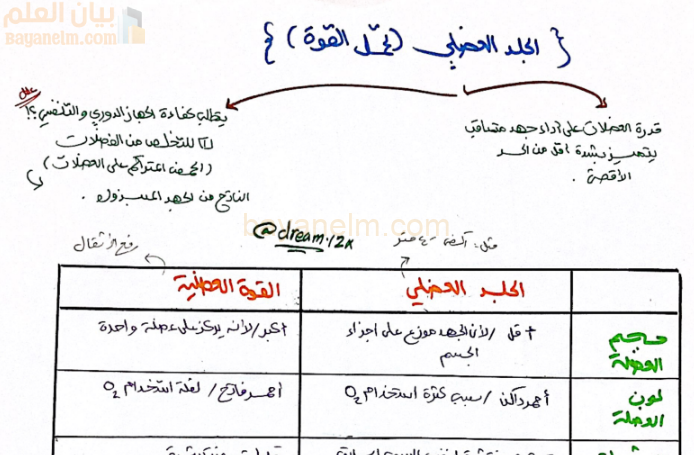 بيان العلم
bayanelm.com
{ الجلد العضلي ( تحمّل القوة ) }
قدرة العضلات على أداء جهد متعاقب
يتميز بشدة أقل من الحد
الأقصى .
علل
يتطلب كفاءة الجهاز الدوري والتنفسي ؟!
للتخلص من الفضلات
( الحمض المتراكم على العضلات )
الناتج من الجهد المبذول .
bayanelm.com
@dream.12k
مثل:
متر
رفع الأثقال
الجلد العضلي
القوة العضلية
حجم
العضلة
أقل / لأن الجهد موزع على أجزاء
الجسم
أكبر / لأنه يركز على عضلة واحدة
لون
العضلة
أحمر داكن / بسبب كثرة استخدام O₂
أحمر فاتح / لقلة استخدام O₂